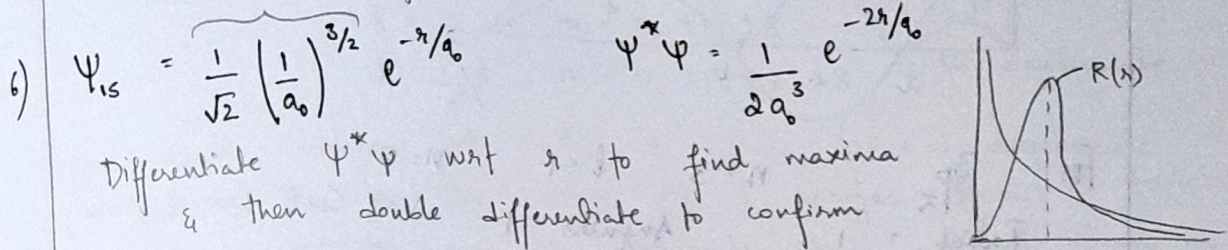 6) ψ₁ₛ = 1/√2 (1/a₀)^3/2 e^-r/a₀   ψ*ψ = 1/2a₀³ e^-2r/a₀
R(r)
Differentiate ψ*ψ wrt r to find maxima
& then double differentiate to confirm